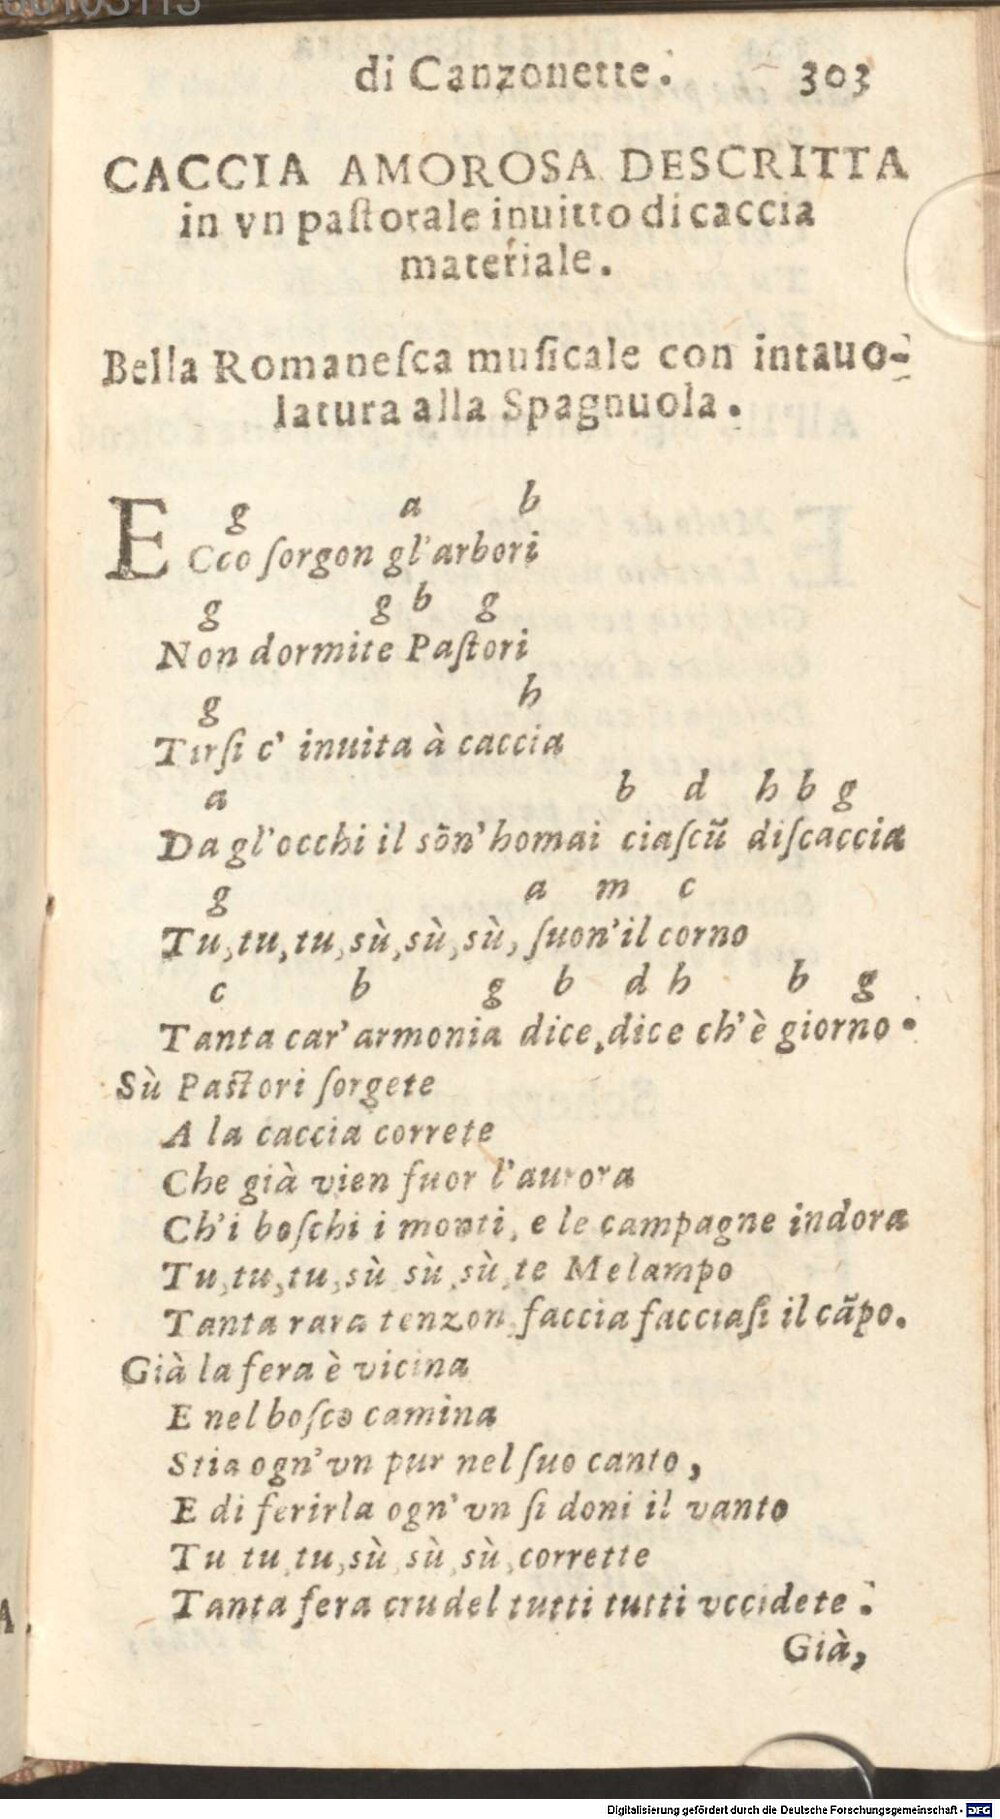 di Canzonette. 303
CACCIA AMOROSA DESCRITTA
in vn paſtorale inuitto di caccia
materiale.
Bella Romaneſca muſicale con intauo-
latura alla Spagnuola.
g a b
ECco ſorgon gl'arbori
g g b g
Non dormite Paſtori
g h
Tirſi c' inuita à caccia
a b d h b g
Da gl'occhi il sõn' homai ciaſcũ diſcaccia
g a m c
Tu, tu, tu, sù, sù, sù, ſuon' il corno
c b g b d h b g
Tanta car' armonia dice, dice ch'è giorno.
Sù Paſtori ſorgete
A la caccia correte
Che già vien fuor l'aurora
Ch'i boſchi i monti, e le campagne indora
Tu, tu, tu, sù sù, sù, te Melampo
Tanta rara tenzon, faccia facciaſi il cãpo.
Già la fera è vicina
E nel boſco camina
Stia ogn' vn pur nel ſuo canto,
E di ferirla ogn' vn ſi doni il vanto
Tu tu, tu, sù, sù, sù, corrette
Tanta fera crudel tutti tutti vccidete.
Già,
Digitalisierung gefördert durch die Deutsche Forschungsgemeinschaft - DFG